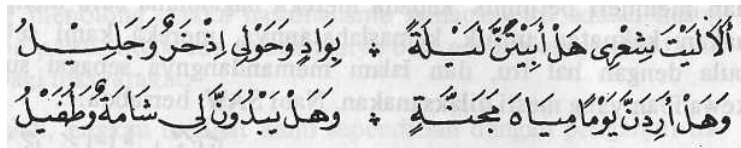 أَلَا لَيْتَ شِعْرِى هَلْ أَبِيْتَنَّ لَيْلَةً ❖ بِوَادٍ وَحَوْلِي إِذْخَرٌ وَجَلِيْلُ
وَهَلْ أَرِدَنَّ يَوْمًا مِيَاهَ مَجَنَّةٍ ❖ وَهَلْ يَبْدُوَنَّ لِي شَامَةٌ وَطُفَيْلُ